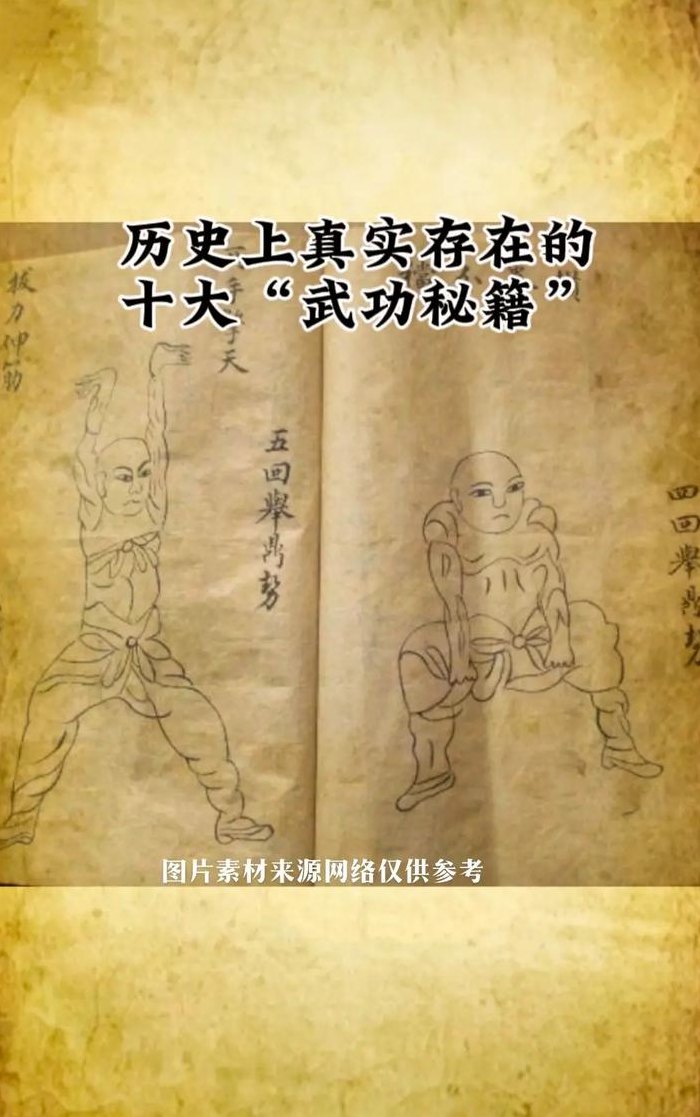 历史上真实存在的
十大“武功秘籍”
四回舉鼎势
五回舉鼎势
拔力伸筋
图片素材来源网络仅供参考